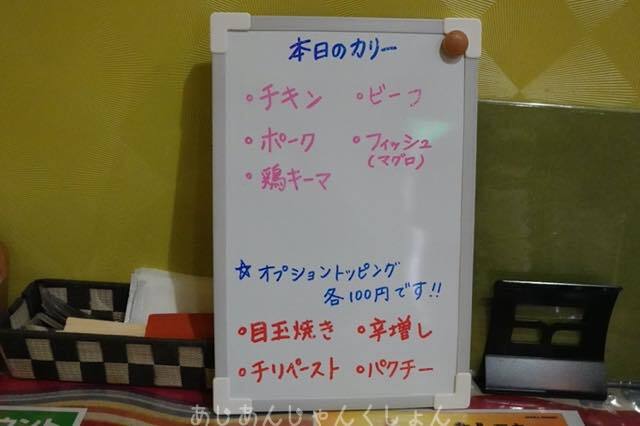 本日のカリー
・チキン ・ビーフ
・ポーク ・フィッシュ
(マグロ)
・鶏キーマ
☆オプショントッピング
各100円です!!
・目玉焼き ・辛増し
・チリペースト ・パクチー
あじあんじゃんくしょん